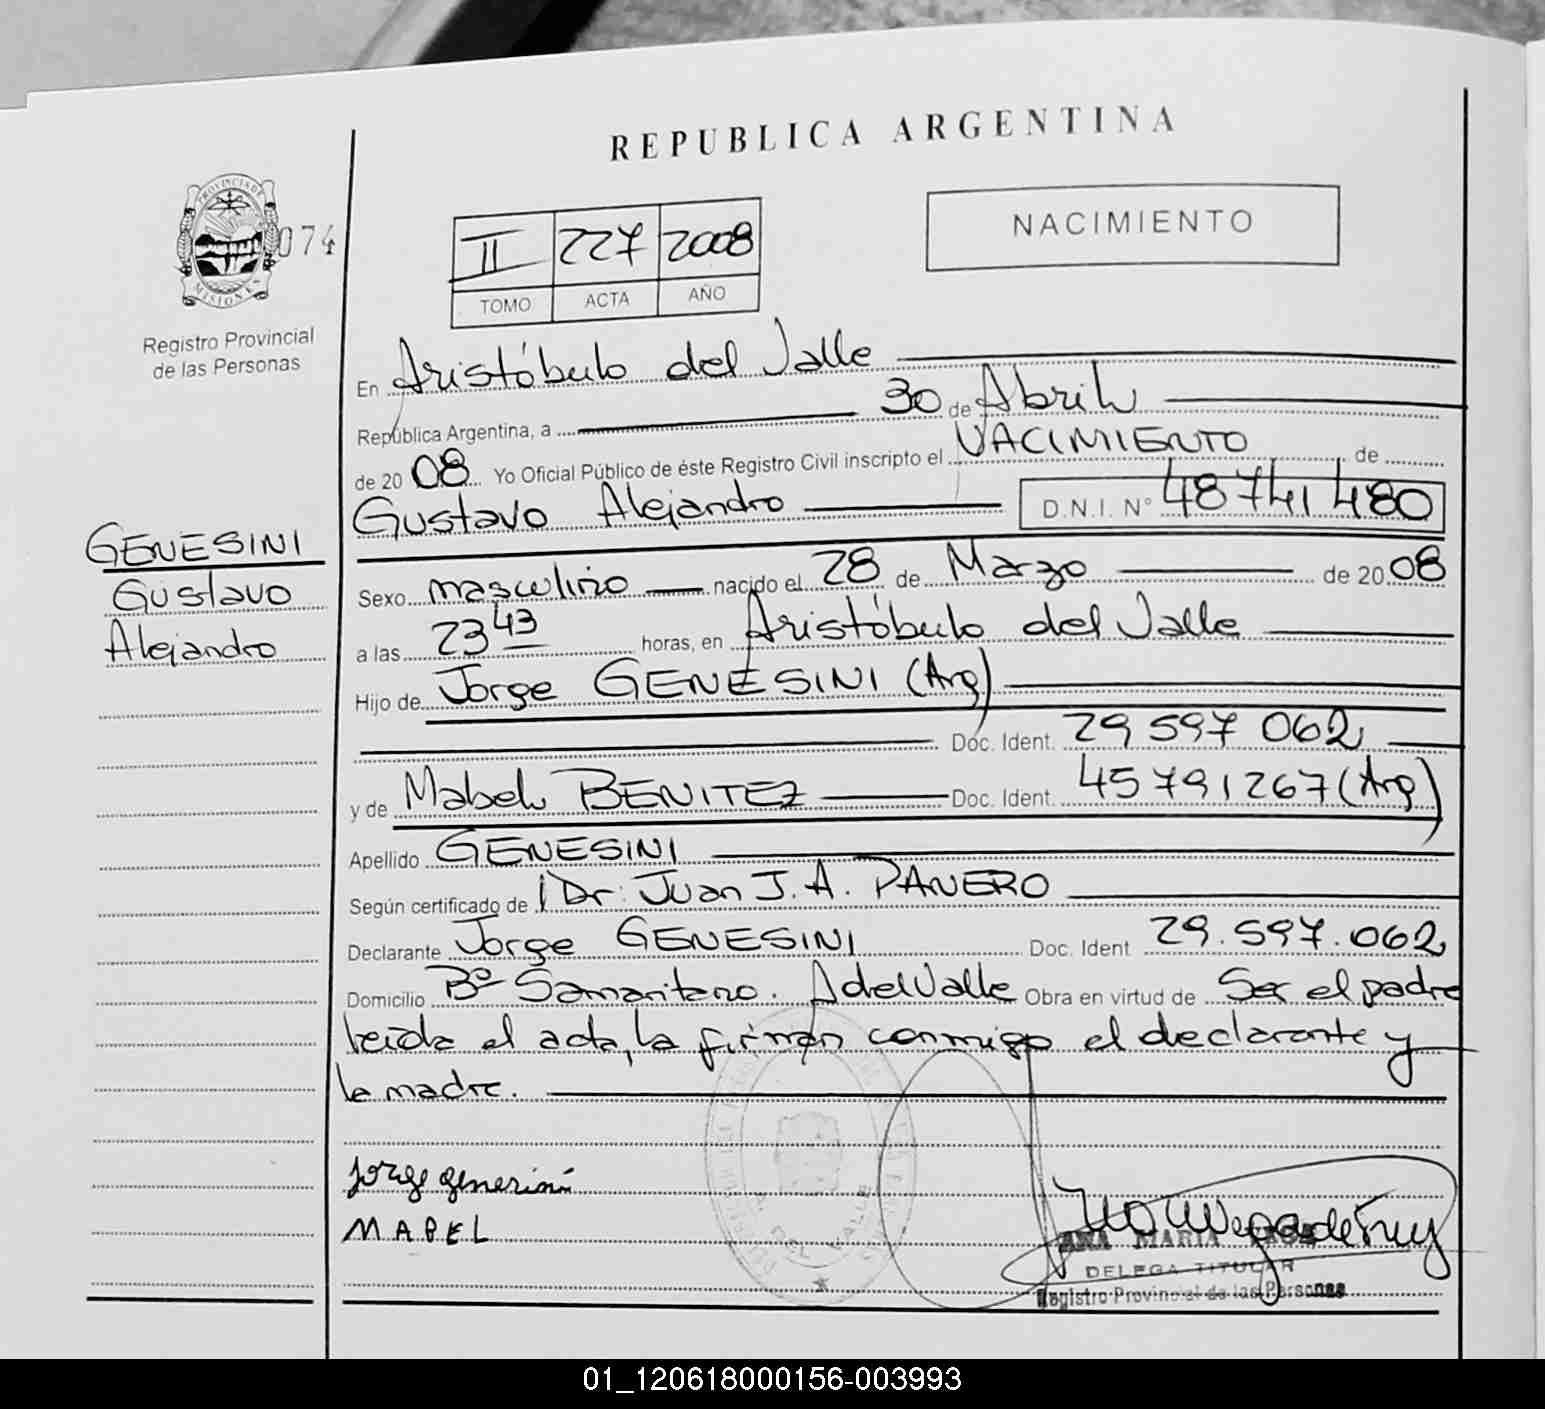 REPUBLICA ARGENTINA
PROVINCIA DE
MISIONES
074
Registro Provincial
de las Personas
II 227 2008
TOMO ACTA AÑO
NACIMIENTO
En Aristóbulo del Valle
República Argentina, a 30 de Abril
de 2008 Yo Oficial Público de éste Registro Civil inscripto el NACIMIENTO de
Gustavo Alejandro D.N.I. Nº 48741480
GENESINI
Gustavo
Alejandro
Sexo masculino nacido el 28 de Marzo de 2008
a las 23 43 horas, en Aristóbulo del Valle
Hijo de Jorge GENESINI (Arg)
Doc. Ident. 29 597 062
y de Mabel BENITEZ Doc. Ident. 45791267 (Arg)
Apellido GENESINI
Según certificado de Dr. Juan J. A. PANERO
Declarante Jorge GENESINI Doc. Ident 29.597.062
Domicilio Bº Samaritano. A del Valle Obra en virtud de Ser el padre
leída el acta, la firman conmigo el declarante y
la madre.
Jorge genesini
MABEL
DEL VALLE
ANA MARIA
DELEGA TITULAR
Registro Provincial de las Personas
01_120618000156-003993